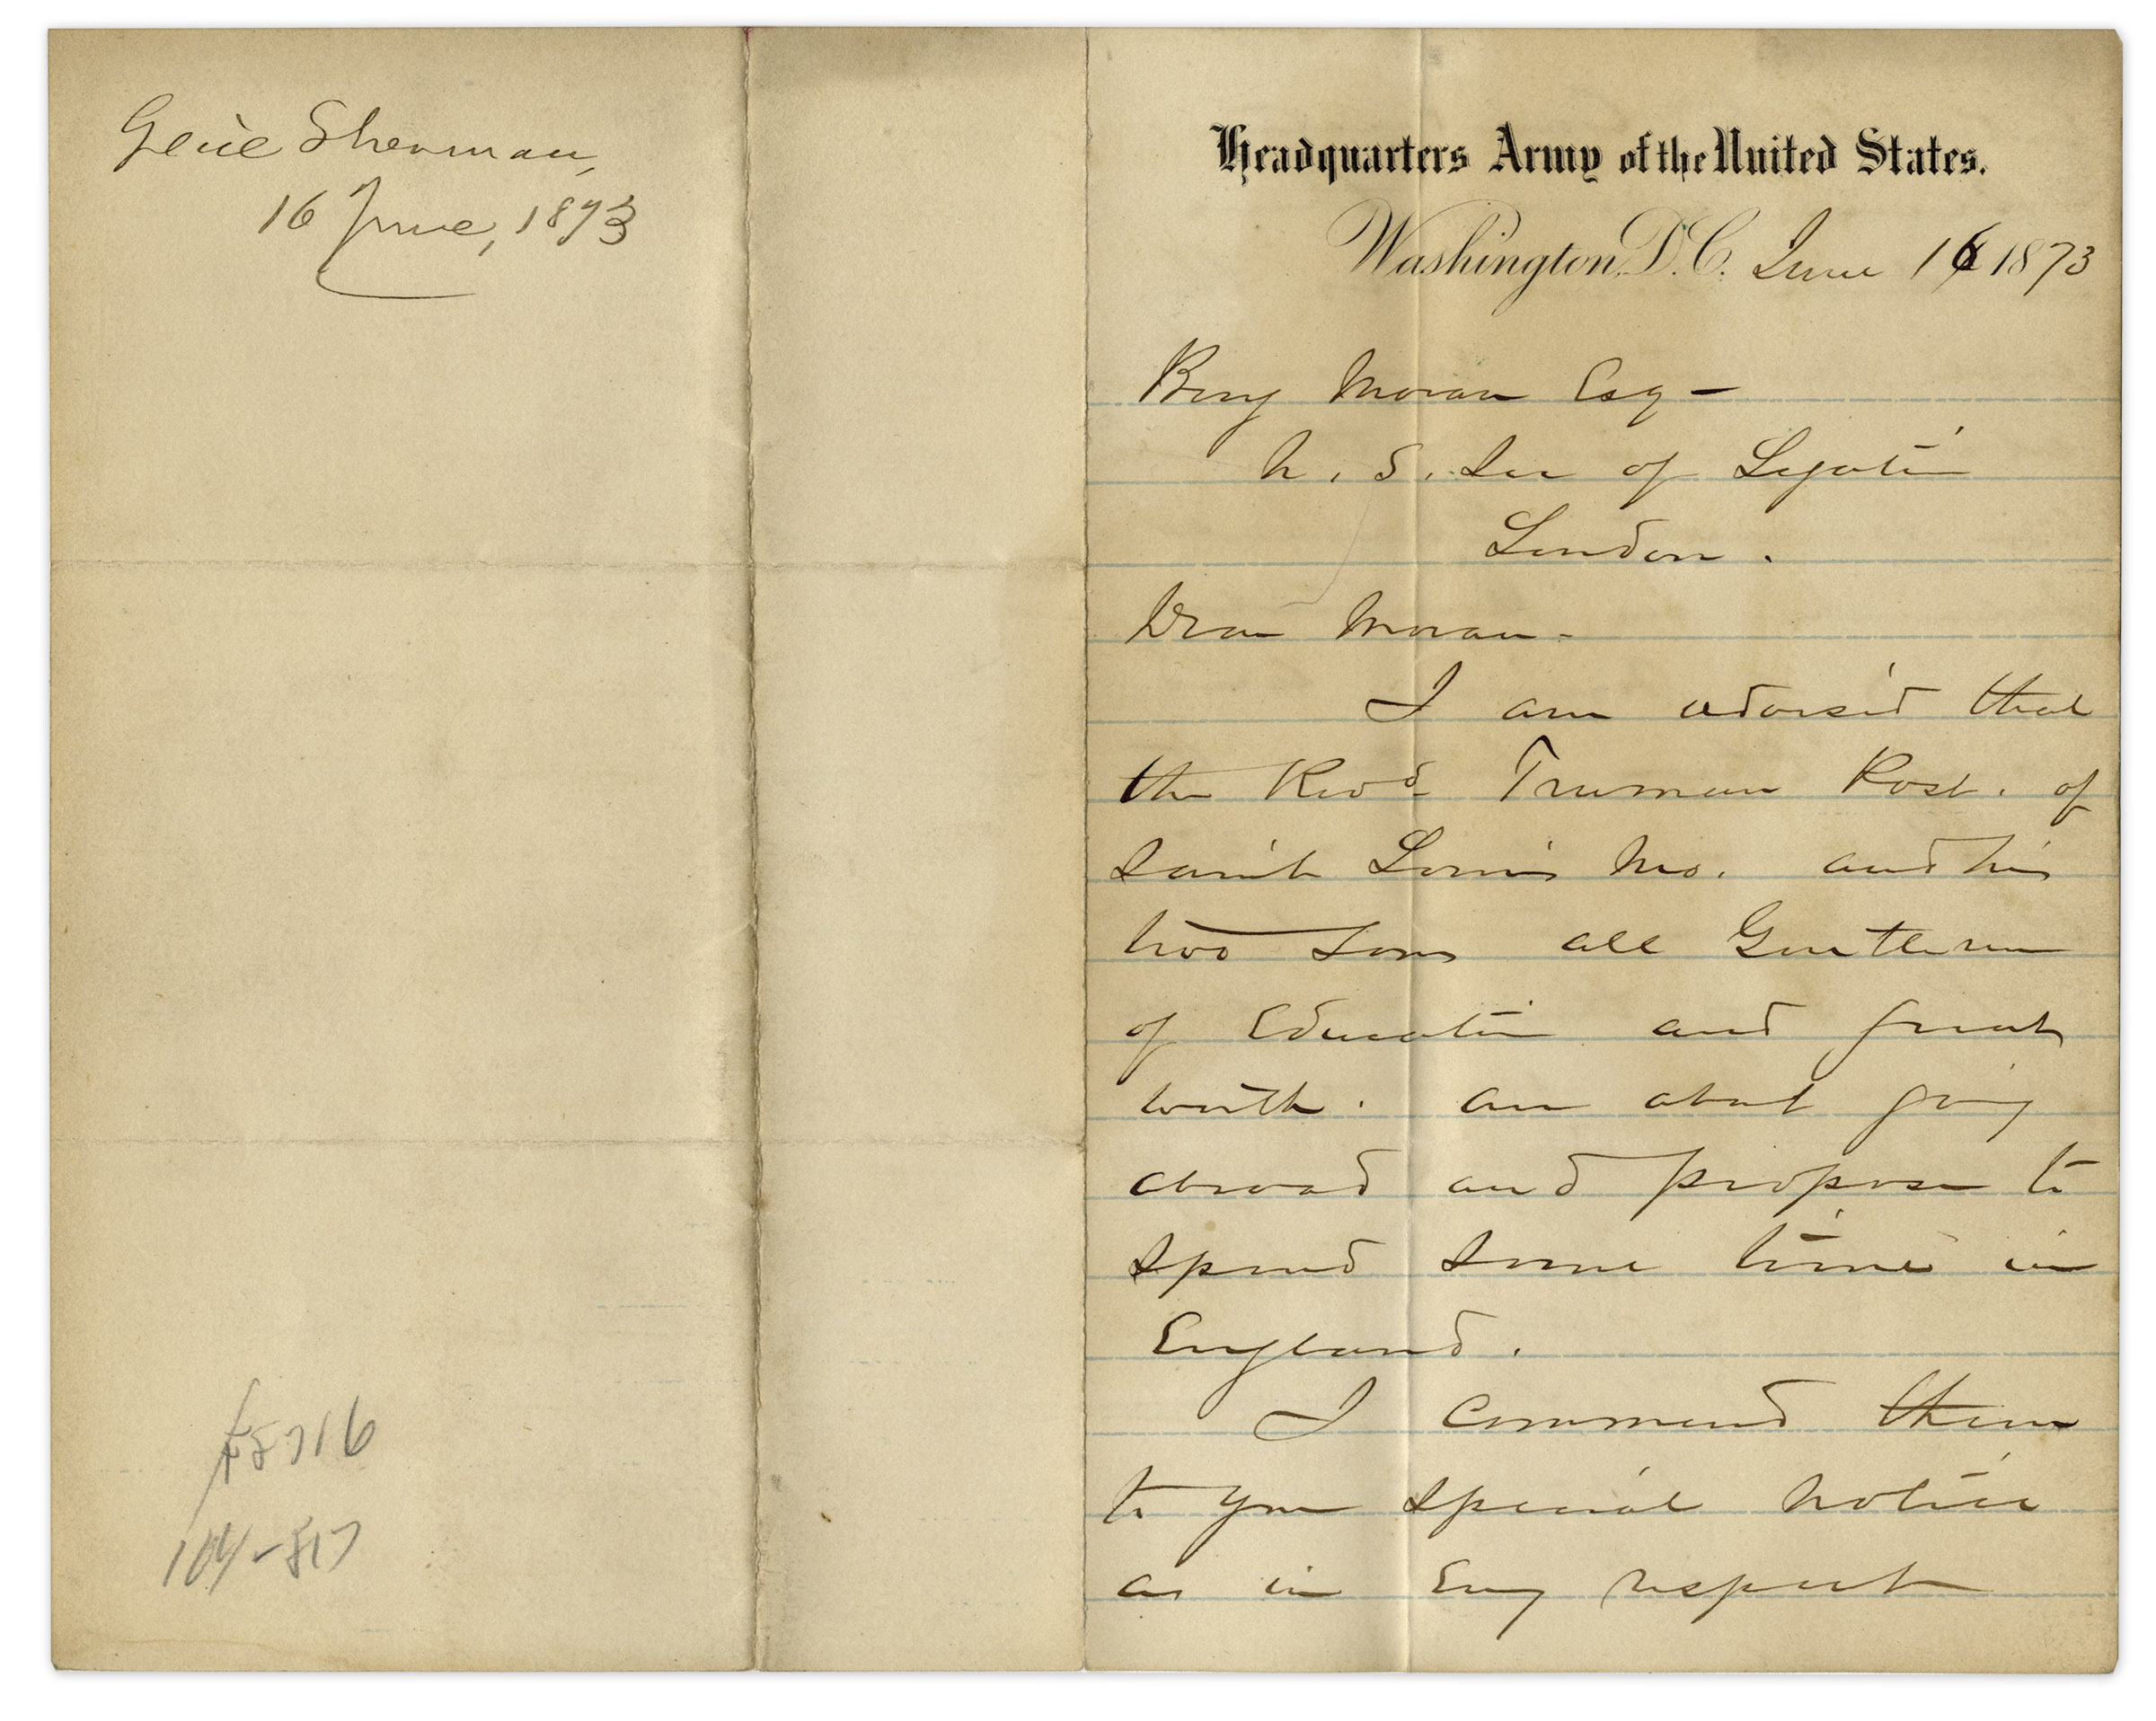 Genl Sherman,
16 June, 1873
Headquarters Army of the United States.
Washington, D.C. June 16 1873
Benj Moran Esq -
U. S. Sec of Legation
London.
Dear Moran -
I am advised that
the Revd Truman Post. of
Saint Louis Mo. and his
two sons all Gentlemen
of Education and great
worth. are about going
abroad and propose to
spend some time in
England.
I commend them
to your special notice
as in Every respect
104-517